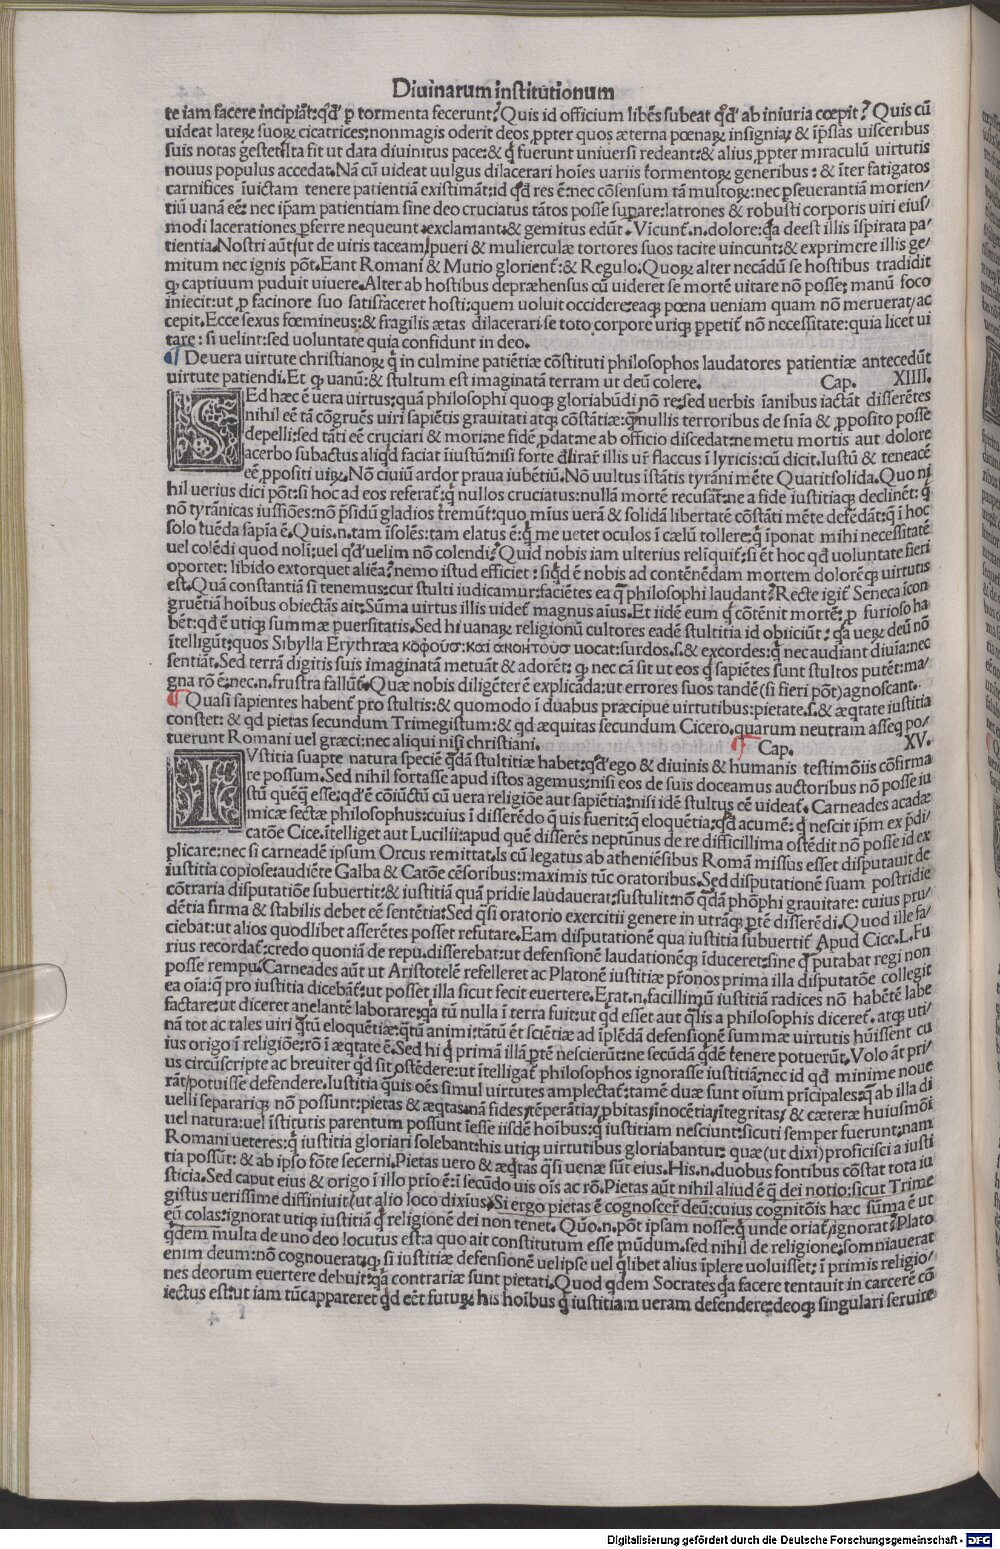 Diuinarum institutionum
te iam facere incipiāt:qđ ꝑ tormenta fecerunt? Quis id officium libēs subeat qđ ab iniuria cœpit? Quis cū
uideat lateꝝ suoꝝ cicatrices:nonmagis oderit deos,ꝓpter quos æterna pœnaꝝ insignia, & ip̄sas uisceribus
suis notas gestet:Ita fit ut data diuinitus pace:& q̄ fuerunt uniuersi redeant:& alius,ꝓpter miraculū uirtutis
nouus populus accedat.Nā cū uideat uulgus dilacerari hoīes uariis tormentoꝝ generibus: & īter fatigatos
carnifices īuictam tenere patientiā existimāt:id qđ res ē:nec cōsensum tā multoꝝ:nec ꝑseuerantiā morien/
tiū uanā eē: nec ip̄am patientiam sine deo cruciatus tātos posse suꝑare:latrones & robusti corporis uiri eius/
modi lacerationes ꝑferre nequeunt exclamant & gemitus edūt.Vicunt̄.n.dolore:q̄a deest illis īspirata pa/
tientia.Nostri aūt(ut de uiris taceam)pueri & mulierculæ tortores suos tacite uincunt:& exprimere illis ge/
mitum nec ignis pōt.Eant Romani & Mutio glorient̄:& Regulo.Quoꝝ alter necādū se hostibus tradidit
ꝙ captiuum puduit uiuere.Alter ab hostibus depræhensus cū uideret se mortē uitare nō posse; manū foco
iniecit:ut ꝓ facinore suo satisfaceret hosti:quem uoluit occidere:eaꝙ pœna ueniam quam nō meruerat/ac
cepit.Ecce sexus fœmineus:& fragilis ætas dilacerari se toto corpore uriꝙ ꝑpetit̄ nō necessitate:quia licet ui
tare: si uelint:sed uoluntate quia confidunt in deo.
¶ De uera uirtute christianoꝝ q̄ in culmine patiētiæ cōstituti philosophos laudatores patientiæ antecedūt
uirtute patiendi.Et ꝙ uanū:& stultum est imaginatā terram ut deū colere. Cap. XIIII.
SEd hæc ē uera uirtus:quā philosophi quoꝙ gloriabūdi nō re:sed uerbis īanibus iactāt differētes
nihil eē tā cōgruēs uiri sapiētis grauitati atꝙ cōstātiæ:q̄nullis terroribus de sn̄ia & ꝓposito posse
depelli:sed tāti eē cruciari & mori:ne fidē ꝓdat:ne ab officio discedat:ne metu mortis aut dolore
acerbo subactus aliqd faciat īiustū:nisi forte dlirar̄ illis ur̄ flaccus ī lyricis:cū dicit.Iustū & teneacē
eē ꝓpositi uiꝝ.Nō ciuiū ardor praua iubētiū.Nō uultus īstātis tyrāni mēte Quatit solida.Quo ni
hil uerius dici pōt:si hoc ad eos referat̄:q̄ nullos cruciatus:nullā mortē recusāt:ne a fide iustitiaꝙ declinēt: q̄
nō tyrānicas iussiōes:nō p̄sidū gladios tremūt:quo mīus uerā & solidā libertatē cōstāti mēte defēdāt:q̄ ī hoc
solo tuēda sapīa ē.Quis.n.tam īsolēs:tam elatus ē:q̄ me uetet oculos ī cælū tollere:q̄ īponat mihi necessitatē
uel colēdi quod noli:uel qđ uelim nō colendi?Quid nobis iam ulterius reliquit̄:si ēt hoc qđ uoluntate fieri
oportet: libido extorquet aliēa?nemo istud efficiet: siqd ē nobis ad contēnēdam mortem dolorēꝙ uirtutis
est.Quā constantiā si tenemus:cur stulti iudicamur:faciētes ea q̄ philosophi laudant?Recte igit̄ Seneca īcon
gruētiā hoībus obiectās ait:Sūma uirtus illis uidet̄ magnus aīus.Et iidē eum q̄ cōtēnit mortē:ꝓ furioso ha
bēt:qđ ē utiꝙ summæ ꝑuersitatis.Sed hi uanaꝝ religionū cultores eadē stultitia id obiiciūt: q̄a ueꝝ deū nō
ītelligūt:quos Sibylla Erythræa κοφουσ:και ανοητουσ uocat:surdos.s.& excordes:q̄ nec audiant diuīa:nec
sentiāt.Sed terrā digitis suis imaginatā metuāt & adorēt: ꝙ nec cā sit ut eos q̄ sapiētes sunt stultos putēt:ma/
gna rō ē:nec.n.frustra fallūt̄.Quæ nobis diligēter ē explicāda:ut errores suos tandē(si fieri pōt)agnoscant.
¶ Quasi sapientes habent̄ pro stultis:& quomodo ī duabus præcipue uirtutibus:pietate.s.& æqtate iustitia
constet: & qd pietas secundum Trimegistum:& qd æquitas secundum Cicero,quarum neutram asseq po/
tuerunt Romani uel græci:nec aliqui nisi christiani. ¶ Cap. XV.
IVstitia suapte natura speciē q̄dā stultitiæ habet:qđ ego & diuinis & humanis testimōiis cōfirma
re possum.Sed nihil fortasse apud istos agemus:nisi eos de suis doceamus auctoribus nō posse iu
stū quēꝙ esse:qđ ē cōiūctū cū uera religiōe aut sapiētia:nisi idē stultus eē uideat̄.Carneades acadæ
micæ sectæ philosophus:cuius ī disserēdo q̄ uis fuerit:q̄ eloquētia:qđ acumē: q̄ nescit ip̄m ex p̄di/
catōe Cice.ītelliget aut Lucilii:apud quē disserēs neptūnus de re difficillima ostēdit nō posse id ex
plicare:nec si carneadē ipsum Orcus remittat.Is cū legatus ab atheniēsibus Romā missus esset disputauit de
iustitia copiose:audiēte Galba & Catōe cēsoribus:maximis tūc oratoribus.Sed disputationē suam postridie
cōtraria disputatiōe subuertit:& iustitiā quā pridie laudauerat:sustulit:nō q̄dā phōphi grauitate: cuius pru/
dētia firma & stabilis debet eē sentētia:Sed q̄si oratorio exercitii genere in utrāꝙ ꝑtē disserēdi.Quod ille fa/
ciebat:ut alios quodlibet asserētes posset refutare.Eam disputationē qua iustitia subuertit̄ Apud Cice.L.Fu
rius recordat̄:credo quoniā de repu.disserebat:ut defensionē laudationēꝙ īduceret:sine q̄ putabat regi non
posse rempu.Carneades aūt ut Aristotelē refelleret ac Platonē iustitiæ pr̄onos prima illa disputatōe collegit
ea oīa:q̄ pro iustitia dicebāt̄:ut posset illa sicut fecit euertere.Erat.n.facillimū iustitiā radices nō habētē labe
factare:ut diceret anelantē laborare:q̄a tū nulla ī terra fuit:ut qđ esset aut q̄lis a philosophis diceret̄. atꝙ uti/
nā tot ac tales uiri q̄tū eloquētiæ:q̄tū animītātū ēt sciētiæ ad īplēdā defensionē summæ uirtutis hūissent cu
ius origo ī religiōe:rō ī æqtate ē.Sed hi q̄ primā illā ꝑtē nescierūt:ne secūdā qđē tenere potuerūt.Volo āt pri/
us circūscripte ac breuiter qđ sit,ostēdere:ut ītelligat̄ philosophos ignorasse iustitiā:nec id qđ minime noue
rāt/potuisse defendere.Iustitia q̄uis oēs simul uirtutes amplectat̄:tamē duæ sunt oīum prīcipales:q̄ ab illa di
uelli separariꝙ nō possunt:pietas & æqtas:nā fides/tēperātia/,pbitas/īnocētia/ītegritas/ & cæteræ huiusmōi
uel natura:uel īstitutis parentum possunt īesse iisdē hoībus:q̄ iustitiam nesciunt:sicuti semper fuerunt:nam
Romani ueteres:q̄ iustitia gloriari solebant:his utiꝙ uirtutibus gloriabantur: quæ(ut dixi)proficisci a iusti
tia possūt: & ab ipso fōte secerni.Pietas uero & æqtas q̄si uenæ sūt eius.His.n.duobus fontibus cōstat tota iu
sticia.Sed caput eius & origo ī illo prio ē:ī secūdo uis oīs ac rō.Pietas aūt nihil aliud ē q̄ dei notio:sicut Trime
gistus uerissime diffiniuit(ut alio loco dixius)Si ergo pietas ē cognoscer̄ deū:cuius cognitōis hæc sūma ē ut
eū colas:ignorat utiꝙ iustitiā q̄ religionē dei non tenet. Qūo.n.pōt ipsam nosse:q̄ unde oriat̄/ignorat?Plato
q̄dem multa de uno deo locutus est:a quo ait constitutum esse mūdum.sed nihil de religione:somniauerat
enim deum:nō cognouerat:ꝙ si iustitiæ defensionē uelipse uel q̄libet alius īplere uoluisset: ī primis religio/
nes deorum euertere debuit:q̄a contrariæ sunt pietati.Quod qdem Socrates q̄a facere tentauit in carcerē cō
iectus est:ut iam tūc appareret qđ eēt futuꝝ his hoībus q̄ iustitiam ueram defendere:deoꝙ singulari seruire
Digitalisierung gefördert durch die Deutsche Forschungsgemeinschaft - DFG